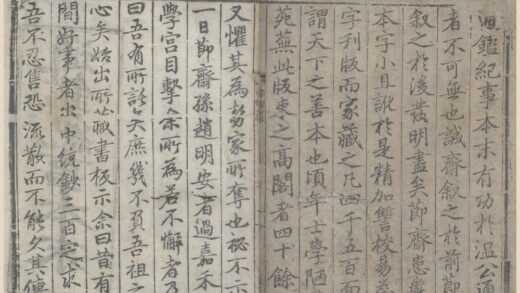 通鑑紀事本末有功於溫公通
者不可無也誠齋叙之於前節
叙之於後發明盡矣節齋患嚴
本字小且訛於是精加讐校易為
字刊版而家藏之凡四千五百面
謂天下之善本也頃年士學陋
苑蕪此版束之高閣者四十餘
又懼其為勢家所奪也秘不示
一日節齋孫趙明安者過嘉禾
學宮目擊余所為若不懈者乃
曰吾有所託矣庶幾不負吾祖之
心矣始出所藏書板示余曰昔有
間好事者出中統鈔三百定求
吾不忍售恐流散而不能久其傳